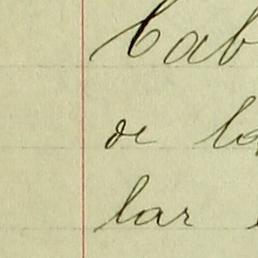 Cab
de la
lar